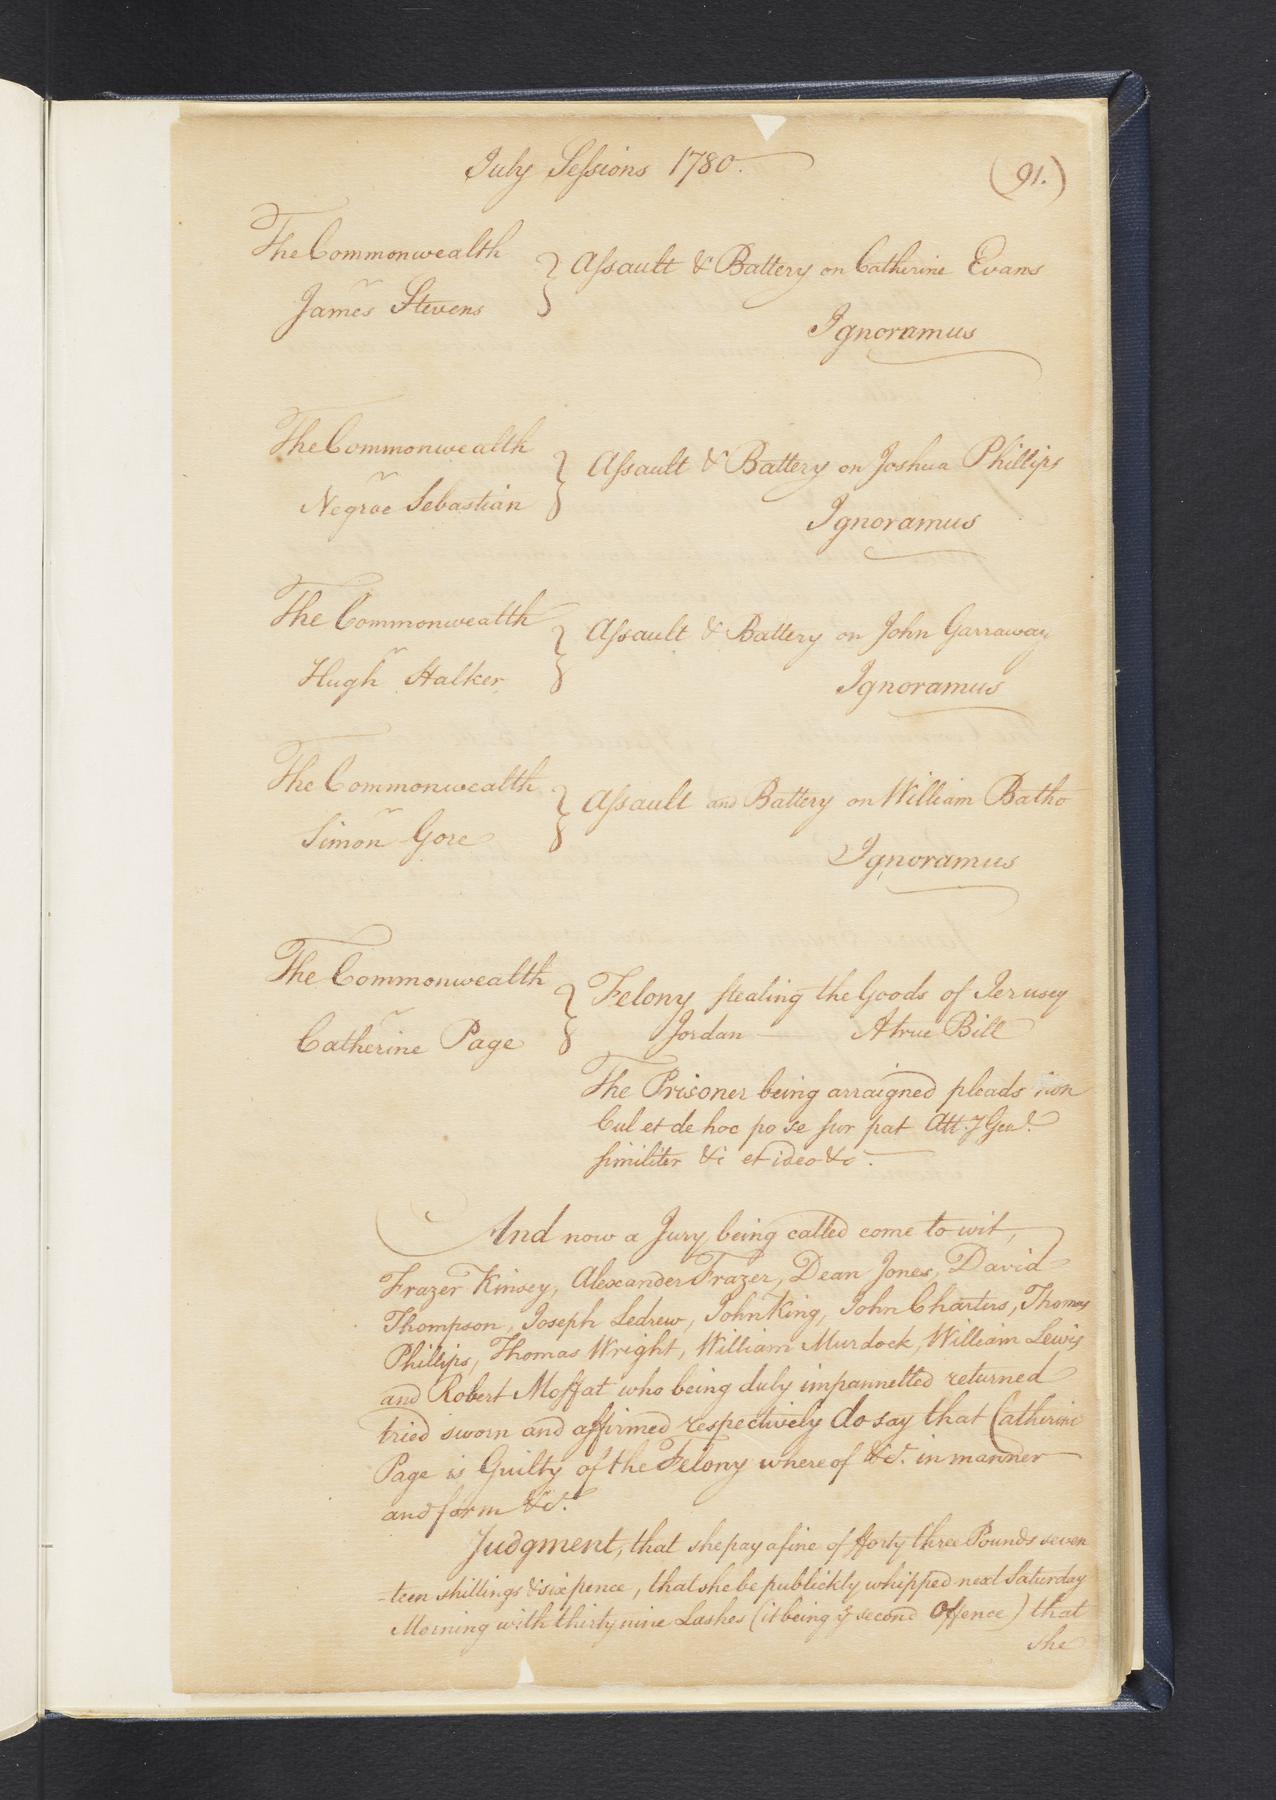 July Sessions 1780.
(91.)
The Commonwealth
vs
James Stevens
} Assault & Battery on Catherine Evans
Ignoramus
The Commonwealth
vs
Negroe Sebastian
} Assault & Battery on Joshua Phillips
Ignoramus
The Commonwealth
vs
Hugh Stalker
} Assault & Battery on John Garraway
Ignoramus
The Commonwealth
vs
Simon Gore
} Assault and Battery on William Batho
Ignoramus
The Commonwealth
vs
Catherine Page
} Felony stealing the Goods of Jerusey
Jordan — A true Bill
The Prisoner being arraigned pleads non
Cul et de hoc po se sur pat Atty Genl.
similiter &c et ideo &c.
And now a Jury being called come to wit,
Frazer Kinsey, Alexander Frazer, Dean Jones, David
Thompson, Joseph Ledrew, John King, John Charters, Thomas
Phillips, Thomas Wright, William Murdock, William Lewis
and Robert Moffat who being duly impannelled returned
tried sworn and affirmed respectively do say that Catherine
Page is Guilty of the Felony whereof &c. in manner
and form &c.
Judgment, that she pay a fine of fforty three Pounds seven
-teen shillings & six pence, that she be publickly whipped next Saturday
Morning with thirty nine Lashes (it being ye second Offence) that
she